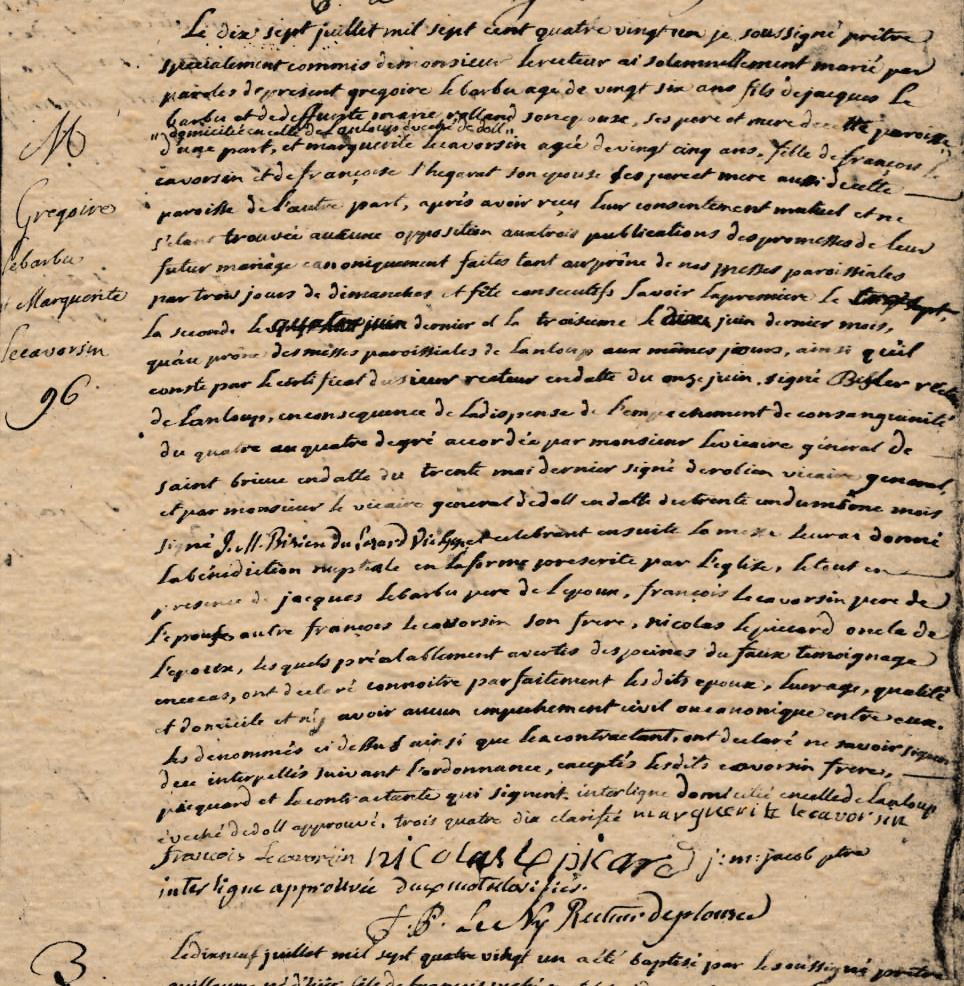 Le dix sept juillet mil sept cent quatre vingt un je soussigné prêtre
specialement commis de monsieur le recteur ai solemnellement marié par
paroles de present gregoire le barbu age de vingt six ans fils de jacques Le
barbu et de deffunte marie rolland son epouse, ses pere et mere de cette paroisse
"domicilié en celle de Lanloup evêché de doll"
d'une part, et marguerite Lecavorsin agée de vingt cinq ans, fille de françois le
cavorsin et de françoise l'hegarat son epouse ses pere et mere aussi de cette
paroisse de l'autre part, après avoir reçu leur consentement mutuel et ne
s'etant trouvée aucune opposition aux trois publications des promesses de leur
futur mariage canoniquement faites tant au prône de nos messes paroissiales
par trois jours de dimanches et fête consecutifs savoir la premiere le
la seconde le juin dernier et la troisieme le dix juin dernier mois,
qu'au prône des messes paroissiales de Lanloup aux mêmes jours, ainsi qu'il
conste par le certificat du sieur recteur en datte du onze juin, signé recteur
de Lanloup, en consequence de la dispense de l'empechement de consanguinité
du quatre au quatre degré accordée par monsieur le vicaire général de
saint brieuc en datte du trente mai dernier signé derolien vicaire general,
et par monsieur le vicaire general de doll en datte du trente un du même mois
signé J. M. et celebrant ensuite la messe leur ai donné
la bénédiction nuptiale en la forme prescrite par l'eglise, le tout en
presence de jacques le barbu pere de l'epoux, françois lecavorsin pere de
l'epouse, autre françois lecavorsin son frere, nicolas le piccard oncle de
l'epoux, lesquels préalablement avertis des peines du faux temoignage
en ce cas, ont declaré connoitre parfaitement les dits epoux, leur age, qualité
et domicile et n'y avoir aucun empechement civil ou canonique entre eux.
les denommés ci dessus ainsi que les contractant, ont declaré ne savoir signer
de ce interpellés suivant l'ordonnance, exceptés lesdits cavorsin freres,
picquard et la contractante qui signent. interligne domicilié en celle de Lanloup
évêché de doll approuvé, trois quatre dix clarifié marguerite lecavorsin
françois Lecavorsin nicolas Le picard j: m: jacob ptre
interligne approuvée
J. P. Le Ny Recteur de plouzec
Le dix neuf juillet mil sept quatre vingt un a été baptisé par le soussigné prêtre
M
Gregoire
Lebarbu
et Marguerite
lecavorsin
96
B